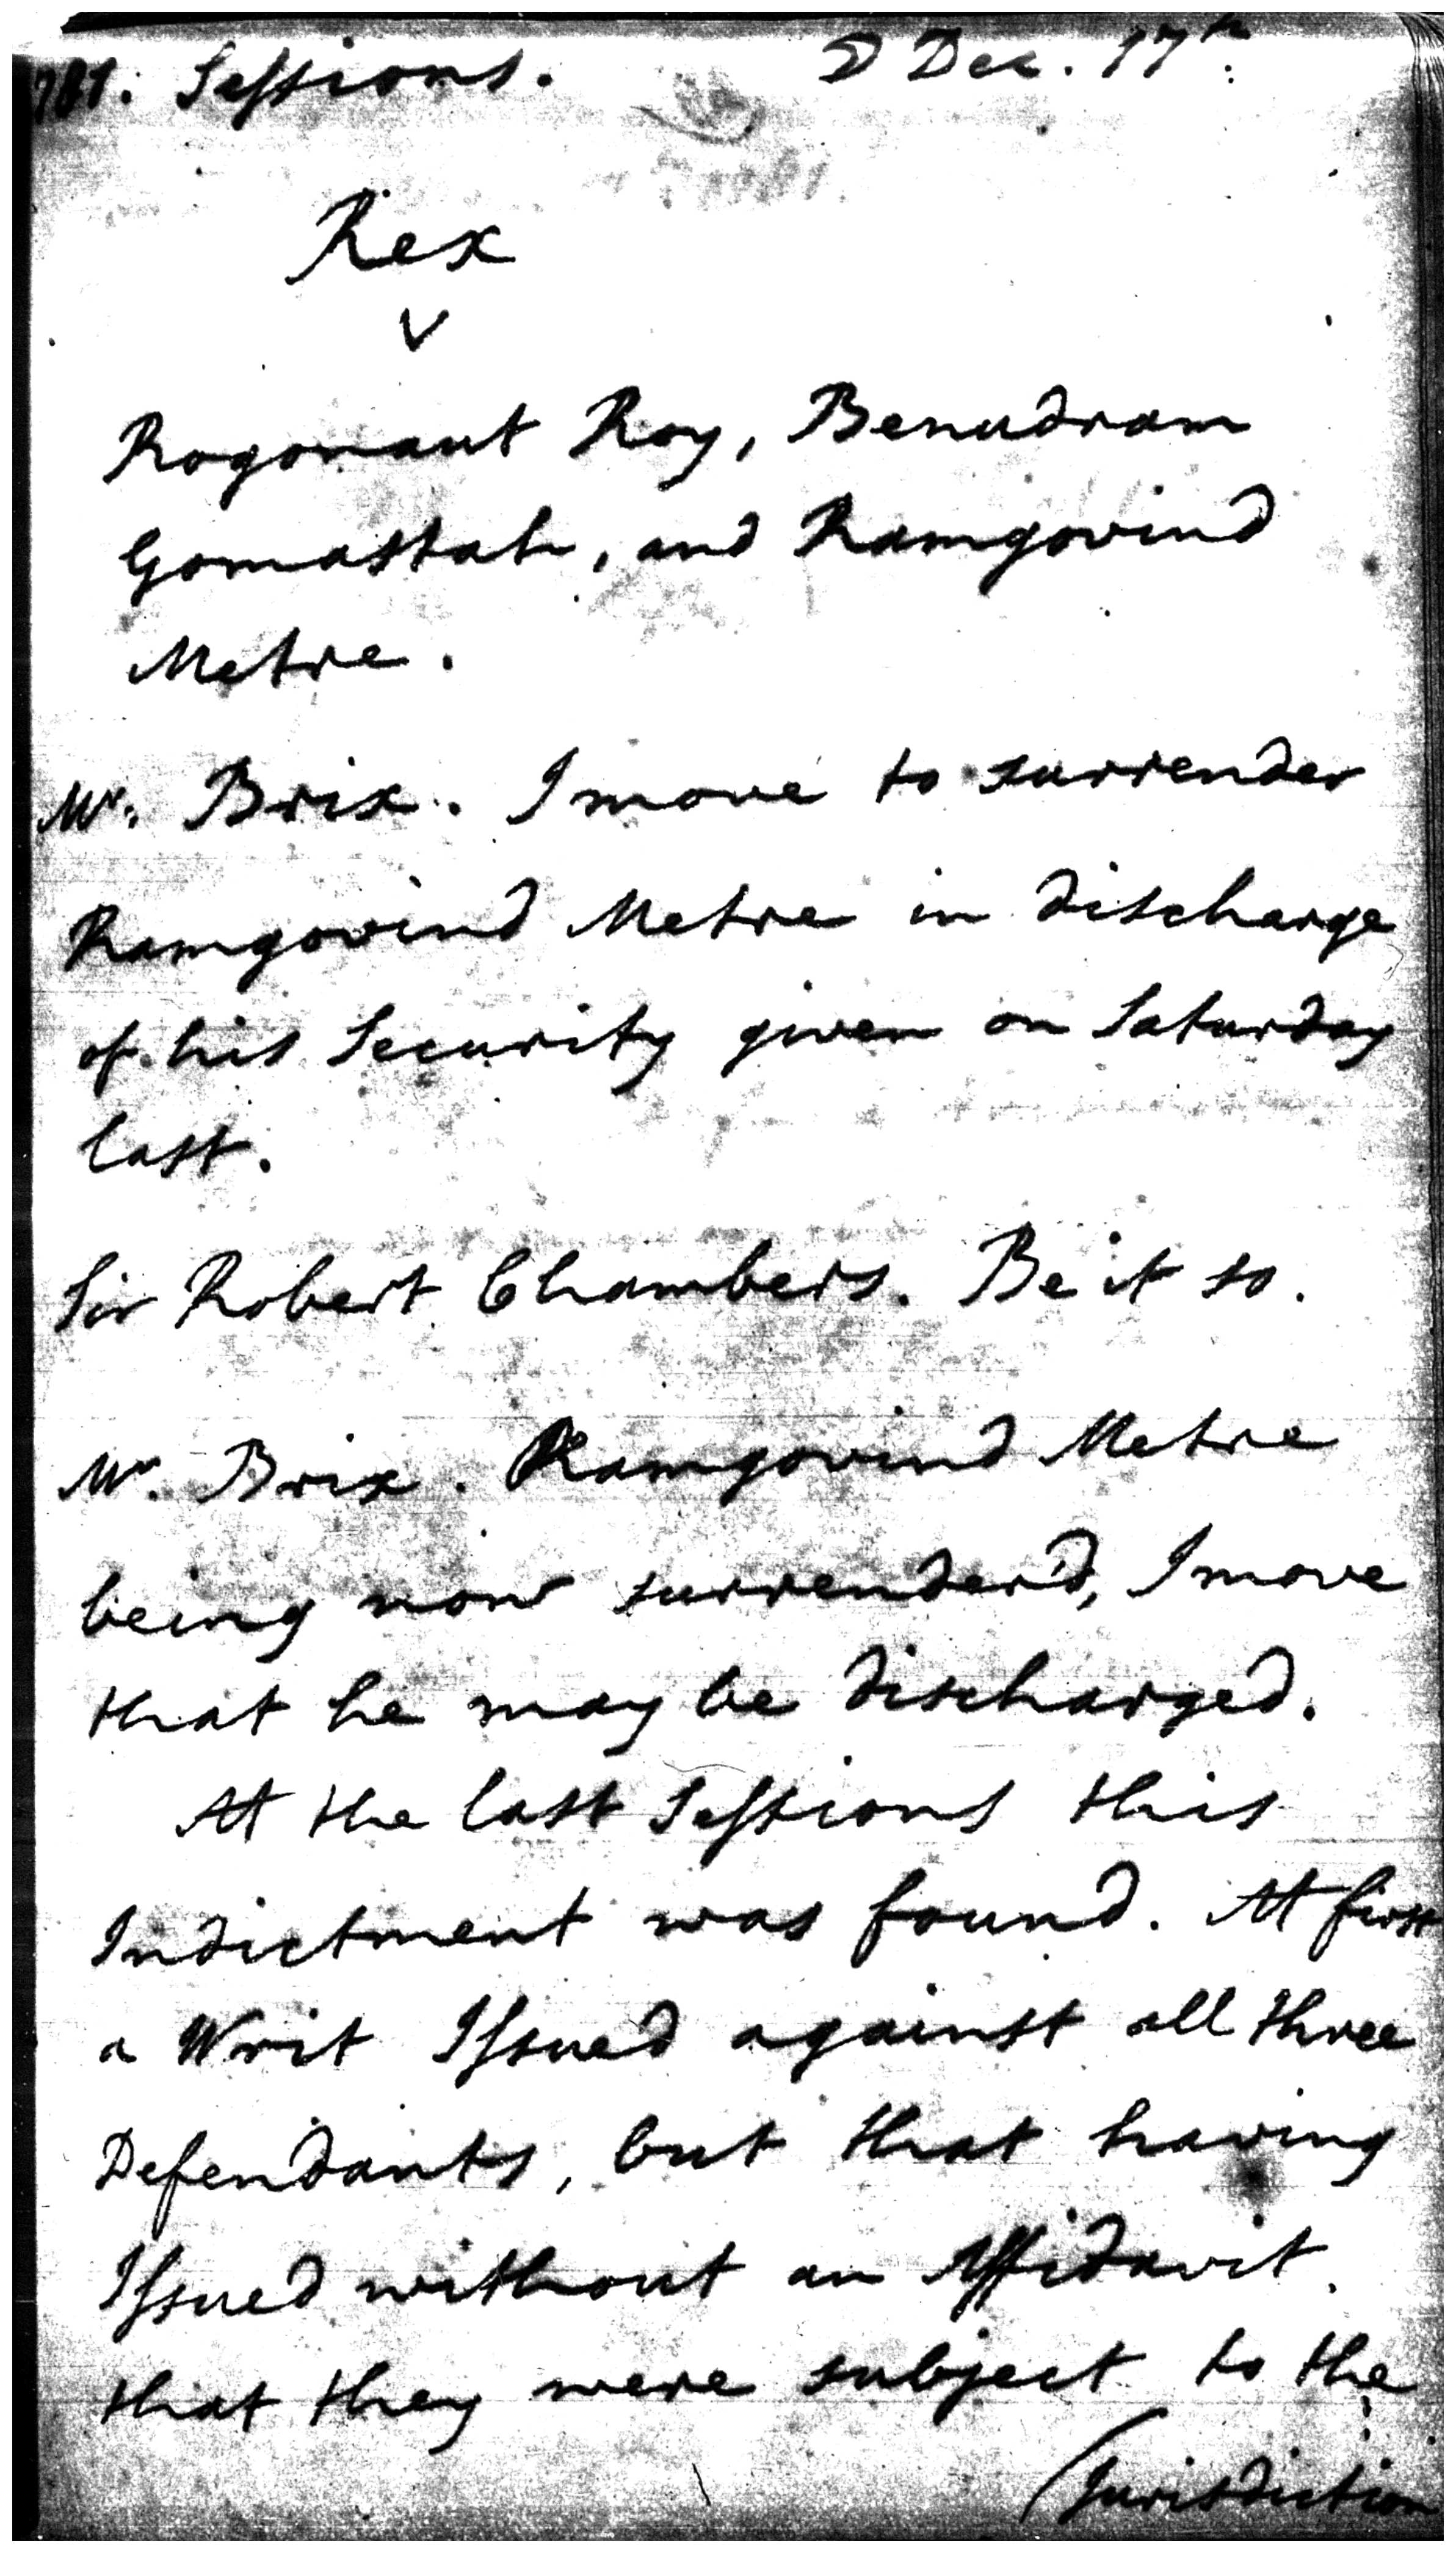 1781. Sessions. D Dec. 17th.
Rex
v
Rogonaut Roy, Benudram
Gomastah, and Ramgovind
Metre.
Mr. Brix. I move to surrender
Ramgovind Metre in discharge
of his Security given on Saturday
last.
Sir Robert Chambers. Be it so.
Mr. Brix. Ramgovind Metre
being now surrender'd, I move
that he may be discharged.
At the last Sessions this
Indictment was found. At first
a Writ Issued against all three
Defendants, but that having
Issued without an Affidavit
that they were subject to the
(Jurisdiction